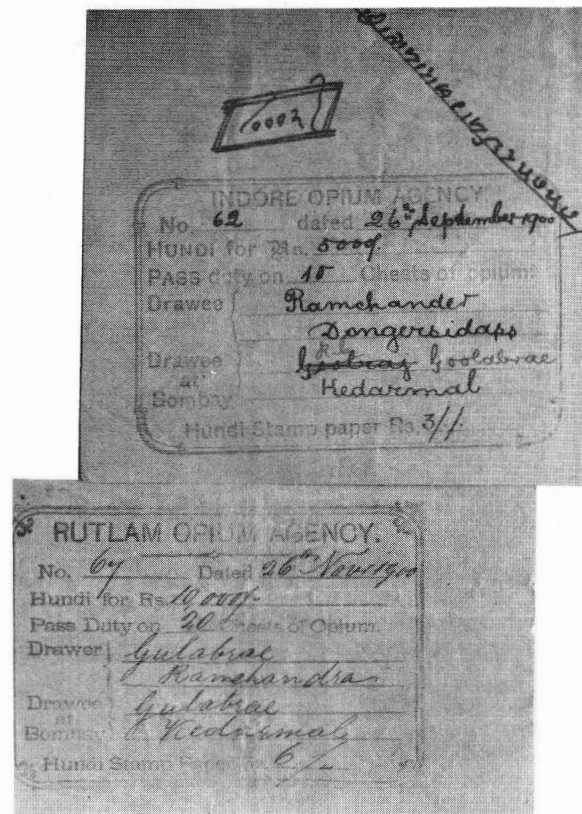 10002
INDORE OPIUM AGENCY
No. 62 dated 26th September 1900
HUNDI for Rs. 5000/.
PASS duty on 10 Chests of opium:
Drawee Ramchander
Dongersidass
Drawee Goolabrae
at Kedarmal
Bombay
Hundi Stamp paper Rs. 3//
RUTLAM OPIUM AGENCY.
No. 67 Dated 26th Novr 1900
Hundi for Rs. 10,000/-
Pass Duty on 20 Chests of Opium.
Drawer Gulabrae
Ramchandra
Drawee Gulabrae
at
Bombay Kedurmal
Hundi Stamp Paper Rs. 6/-